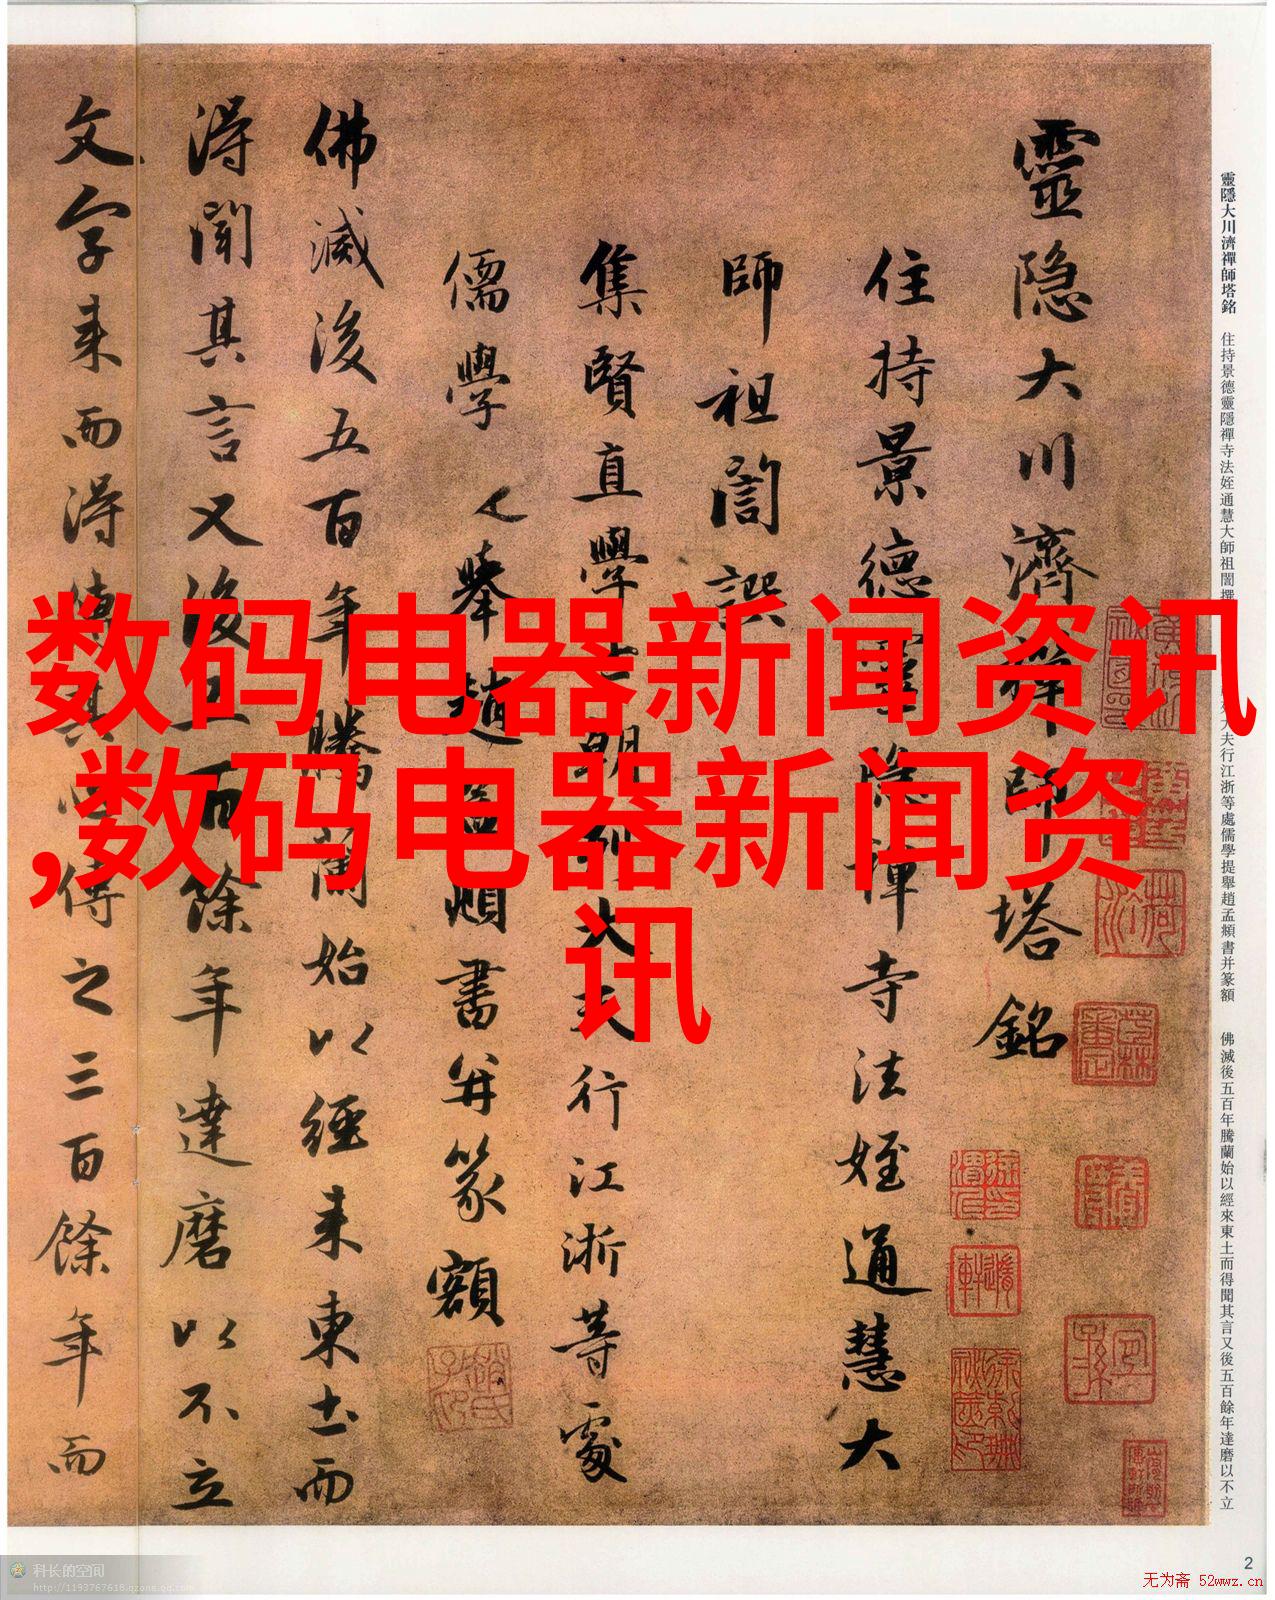 靈隐大川濟禅師塔銘
住持景德靈隐禅寺法姪通慧大
師祖誾譔
集賢直學士朝列大夫行江浙等處
儒學提舉趙孟頫書并篆額
佛滅後五百年騰蘭始以經来東土而
得聞其言又後五百餘年達磨以不立
文字来而得傳其心傳之三百餘年而
靈隱大川濟禪師塔銘 住持景德靈隱禪寺法姪通慧大師祖誾撰
大夫行江浙等處儒學提舉趙孟頫書并篆額 佛滅後五百年騰蘭始以經來東土而得聞其言又後五百餘年達磨以不立
数码电器新闻资讯
,数码电器新闻资
讯
2
科长的空间
http://1193767618.qzone.qq.com
无为斋 52wwz.cn